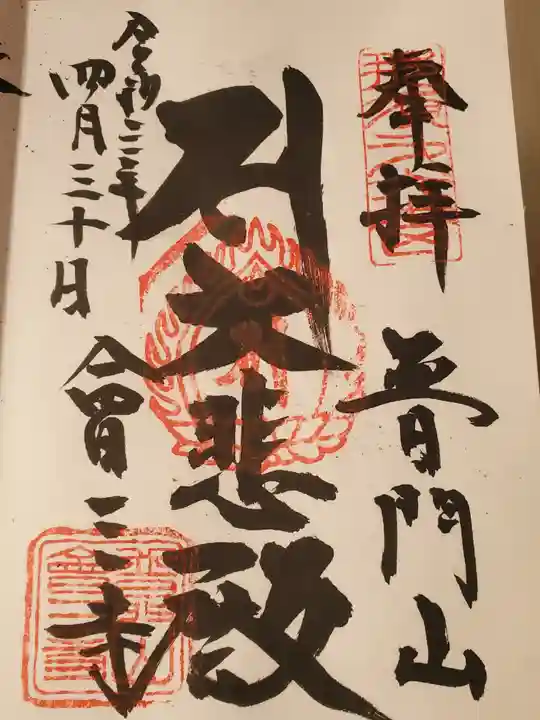 奉拝
普門山
大悲殿
令和三年
四月三十日
會三寺